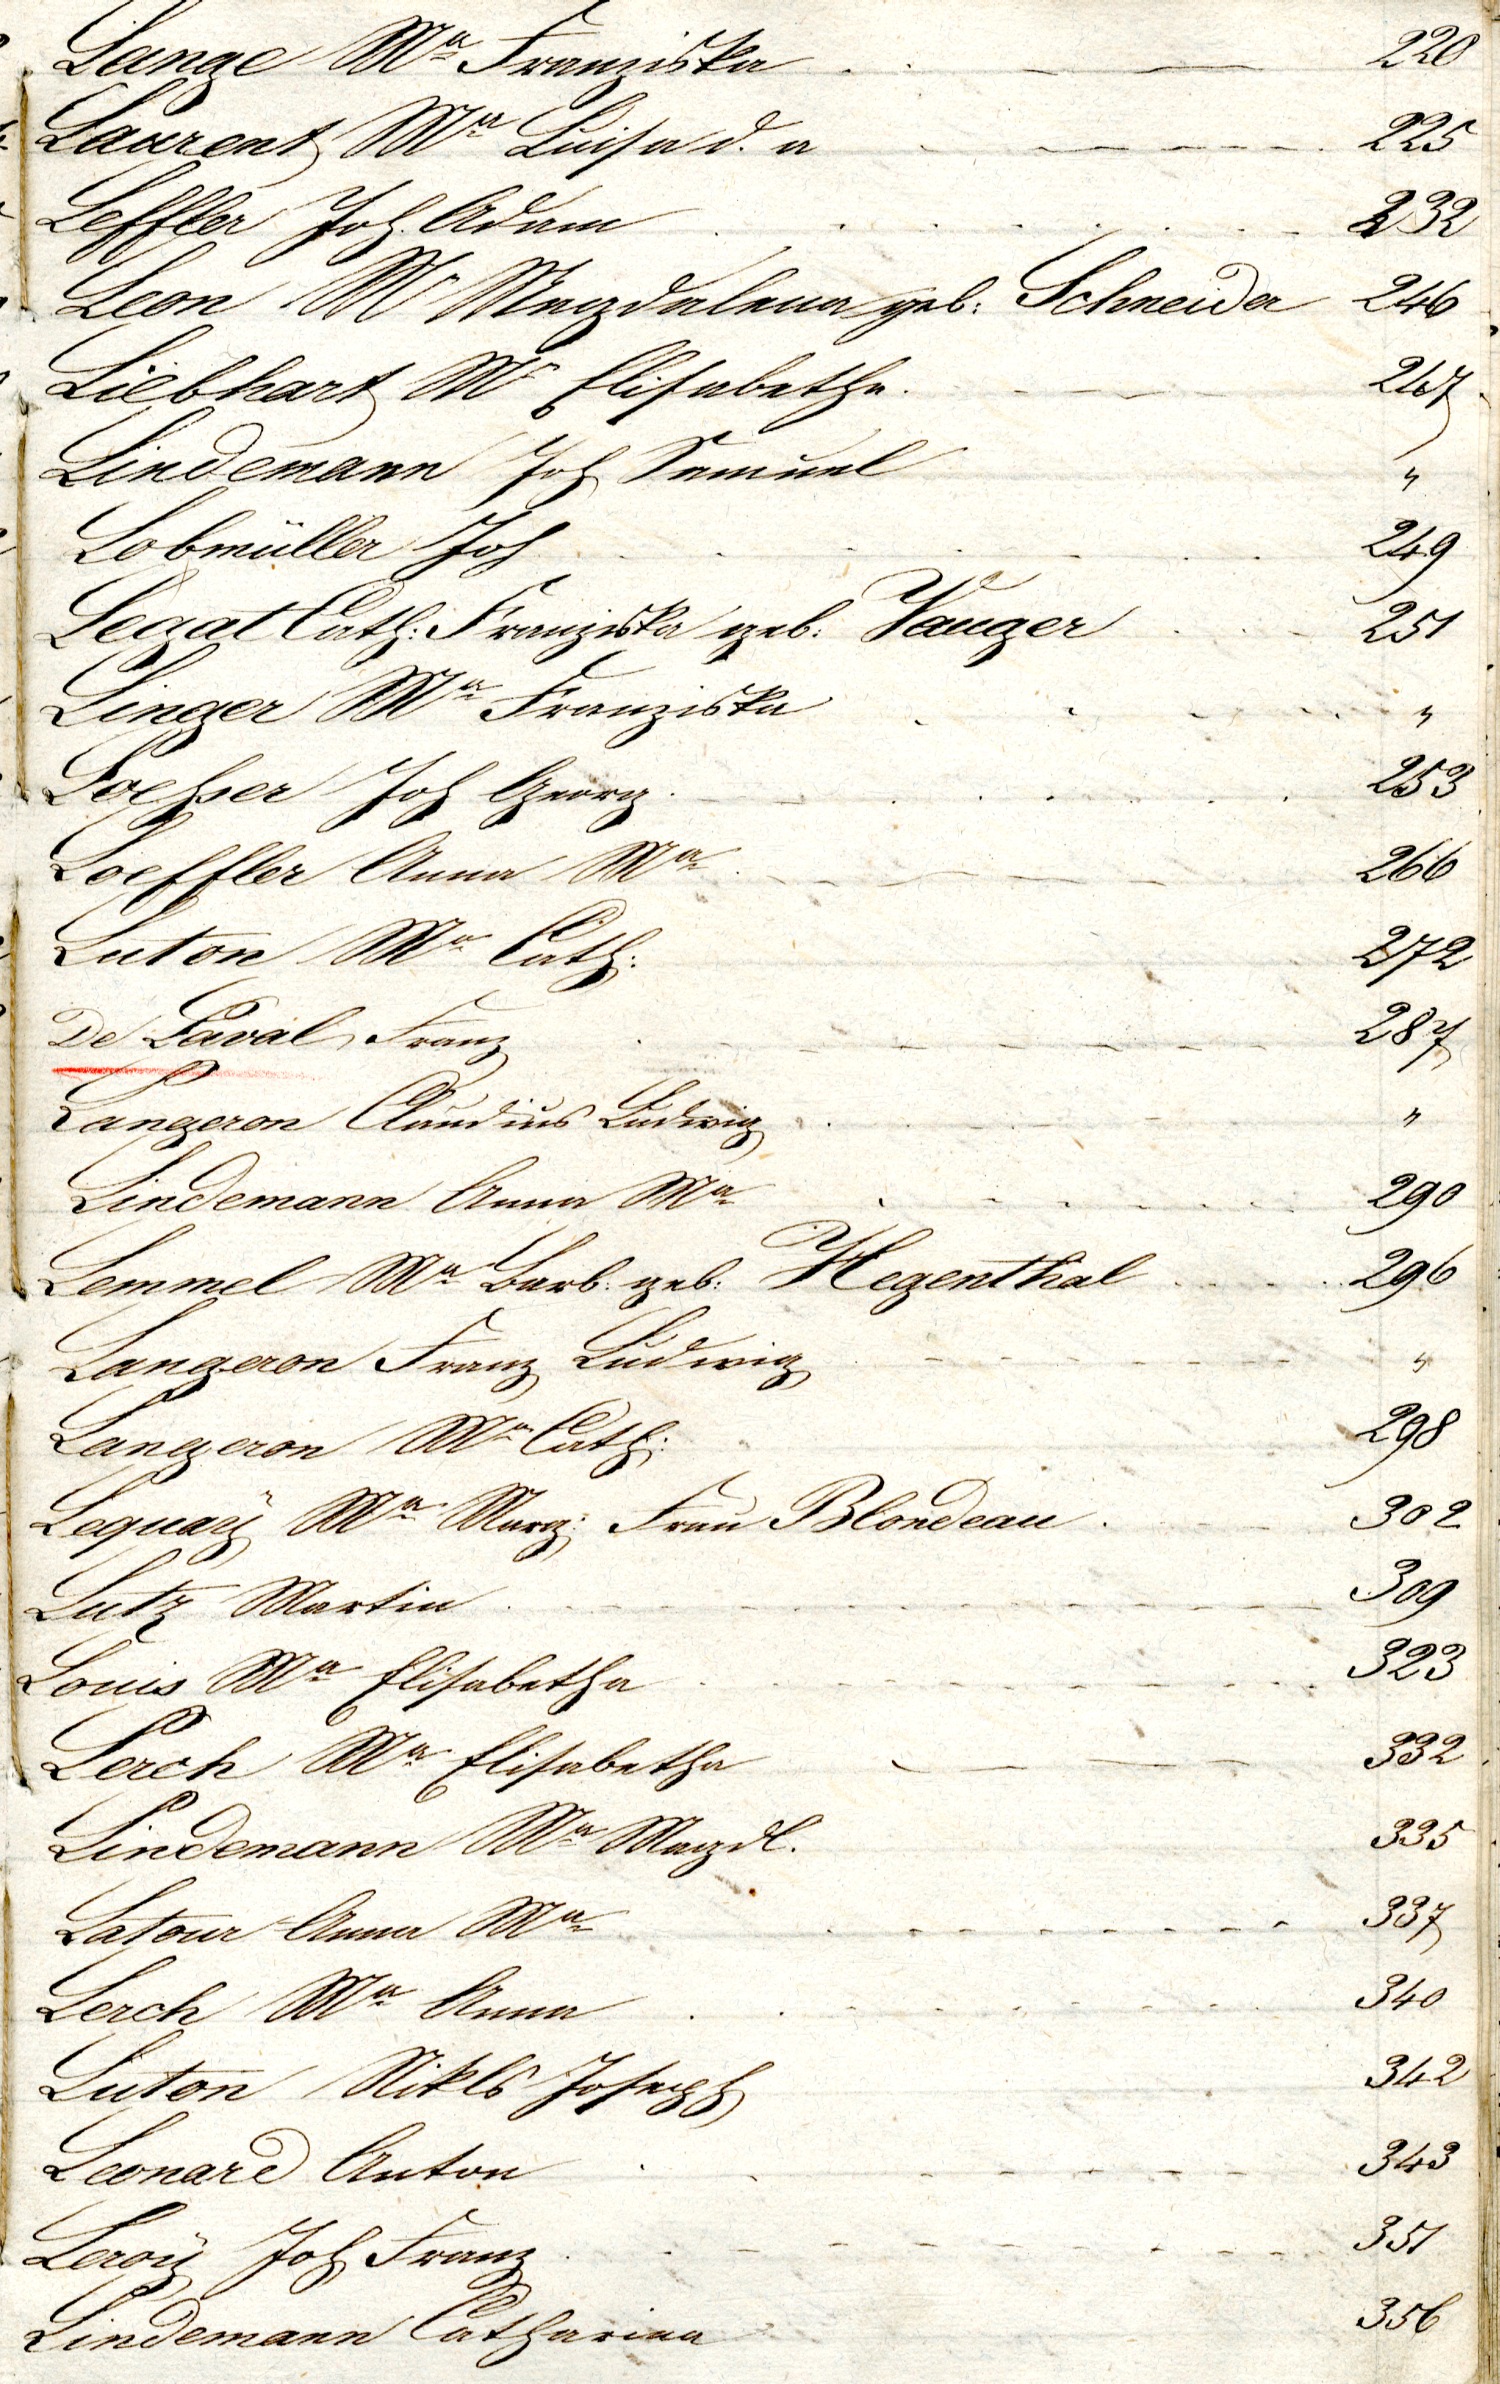 Lange Ma Franziska 220
Laurent Ma Luisa d. a 225
Leffler Joh. Adam 232
Leon M Magdalena geb: Schneider 246
Liebhart M Elisabetha 247
Lindemann Joh Samuel "
Lobmüller Joh 249
Legat Cath: Franziska geb: Vauger 251
Linger Ma Franziska "
Loehser Joh Georg 253
Loeffler Anna Ma 266
Luton Ma Cath: 272
De Laval Franz 287
Langeron Claudius Ludwig "
Lindemann Anna Ma 290
Lemmel Ma Barb: geb: Hegenthal 296
Langeron Franz Ludwig "
Langeron Ma Cath: 298
Lequaÿ Ma Marg: Frau Blondeau 302
Lutz Martin 309
Louis Ma Elisabetha 323
Lerch Ma Elisabetha 332
Lindemann Ma Magdl. 335
Latour Anna Ma 337
Lerch Ma Anna 340
Luton Nikls Joseph 342
Leonard Anton 343
Leroÿ Joh Franz 351
Lindemann Catharina 356